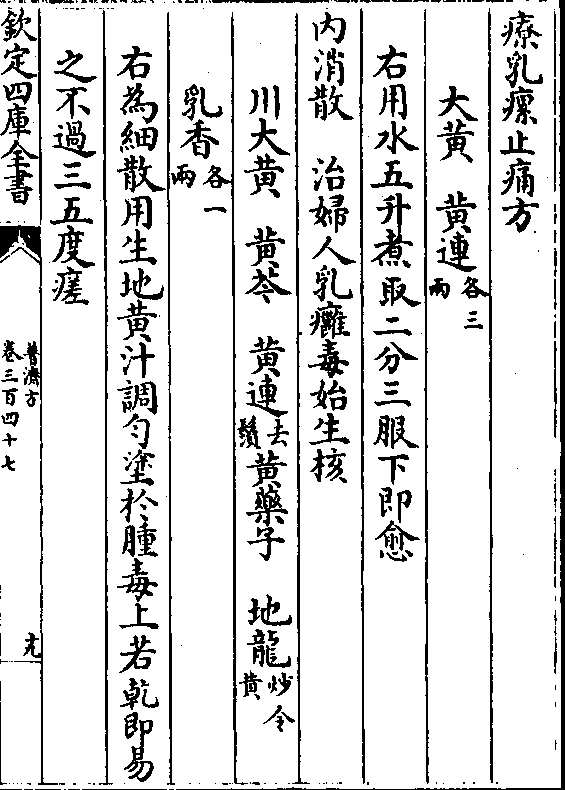 療乳癰止痛方
大黄　黄連各三兩
右用水五升煮取二分三服下即愈
内消散　治婦人乳癰毒始生核
川大黄　黄芩　黄連去鬚　黄藥子　地龍炒令黄
乳香各一兩
右為細散用生地黄汁調匀塗於腫毒上若乾即易
之不過三五度瘥
欽定四庫全書
普濟方
卷三百四十七